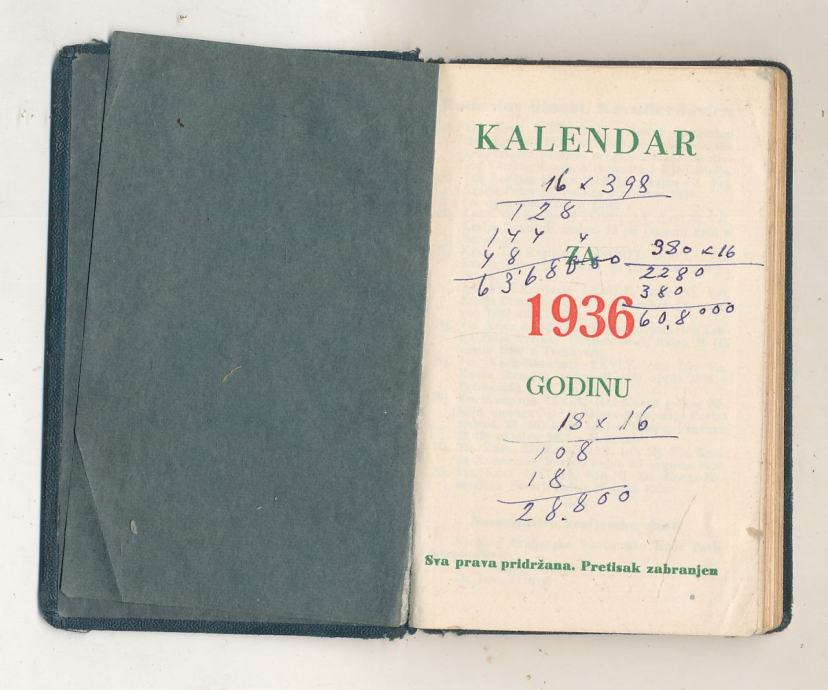 KALENDAR
16 x 398
128
144
48
63680
ZA
380 x 16
2280
380
60.8000
1936
GODINU
18 x 16
108
18
28.800
Sva prava pridržana. Pretisak zabranjen